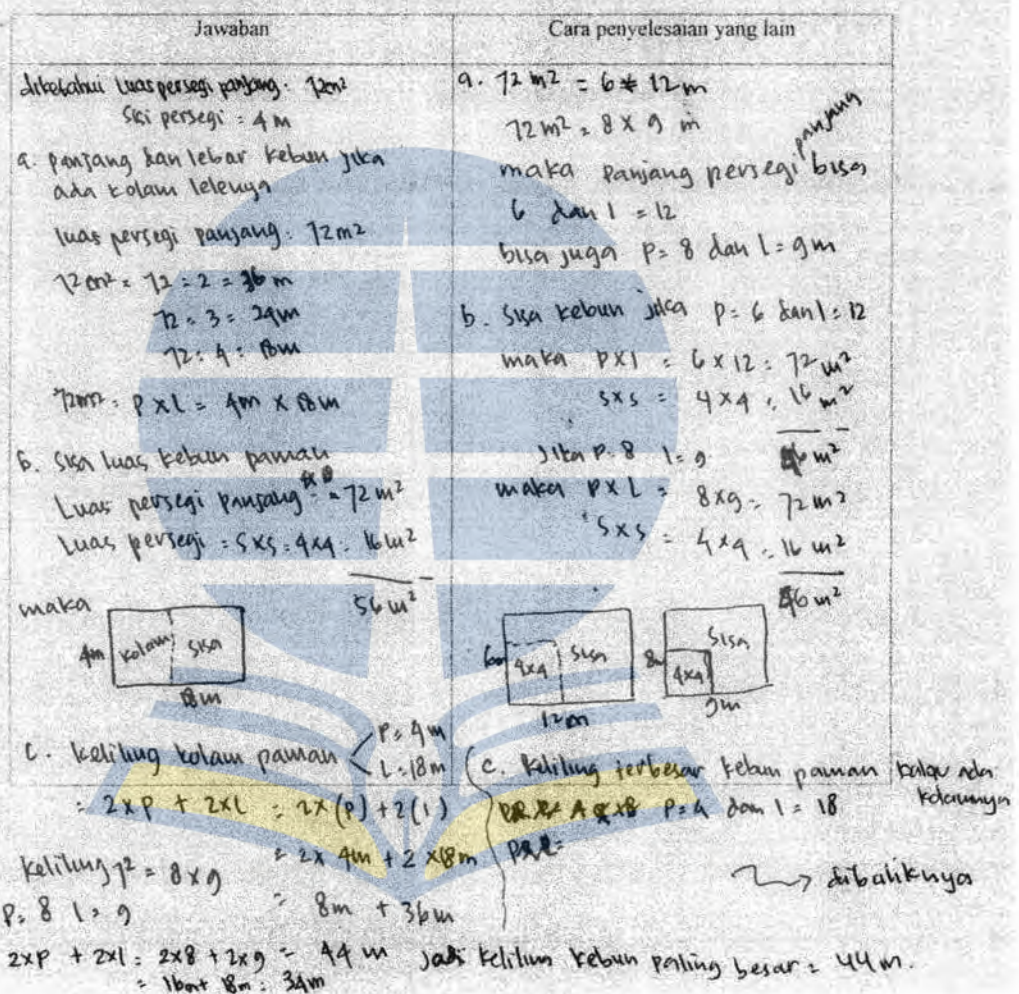 Jawaban
diketahui luas persegi panjang : 72m²
Sisi persegi = 4 m
a. panjang dan lebar kebun jika
ada kolam lelenya
luas persegi panjang : 72m²
72 m² = 72 : 2 = 36 m
72 : 3 = 24m
72 : 4 = 18m
72m² = P x L = 4m x 18m
b. Sisa luas kebun paman
Luas persegi panjang = 72 m²
Luas persegi = SxS = 4x4 = 16 m²
56 m²
maka
4m kolam sisa
18m
c. keliling kolam paman P = 4m
L = 18m
= 2xP + 2xL = 2x(P) + 2(l)
= 2x 4m + 2 x 18m
= 8m + 36m
Keliling 72 = 8x9
P = 8 l = 9
2xP + 2xl = 2x8 + 2x9 = 44 m
= 16m + 18m = 34m
Cara penyelesaian yang lain
a. 72 m² = 6 * 12 m
72 m² = 8 x 9 m
maka panjang persegi panjang bisa
6 dan l = 12
bisa juga P = 8 dan L = 9m
b. Sisa kebun jika P = 6 dan l = 12
maka Pxl = 6 x 12 = 72 m²
sxs = 4x4 = 16 m²
56 m²
Jika P = 8 l = 9
maka PxL = 8x9 = 72 m²
SxS = 4x4 = 16 m²
56 m²
6m 4x4 Sisa
12m
8m 4x4 Sisa
9m
c. Keliling terbesar kebun paman kalau ada kolamnya
P = 4 dan l = 18
dibaliknya
Jadi keliling kebun paling besar = 44 m.